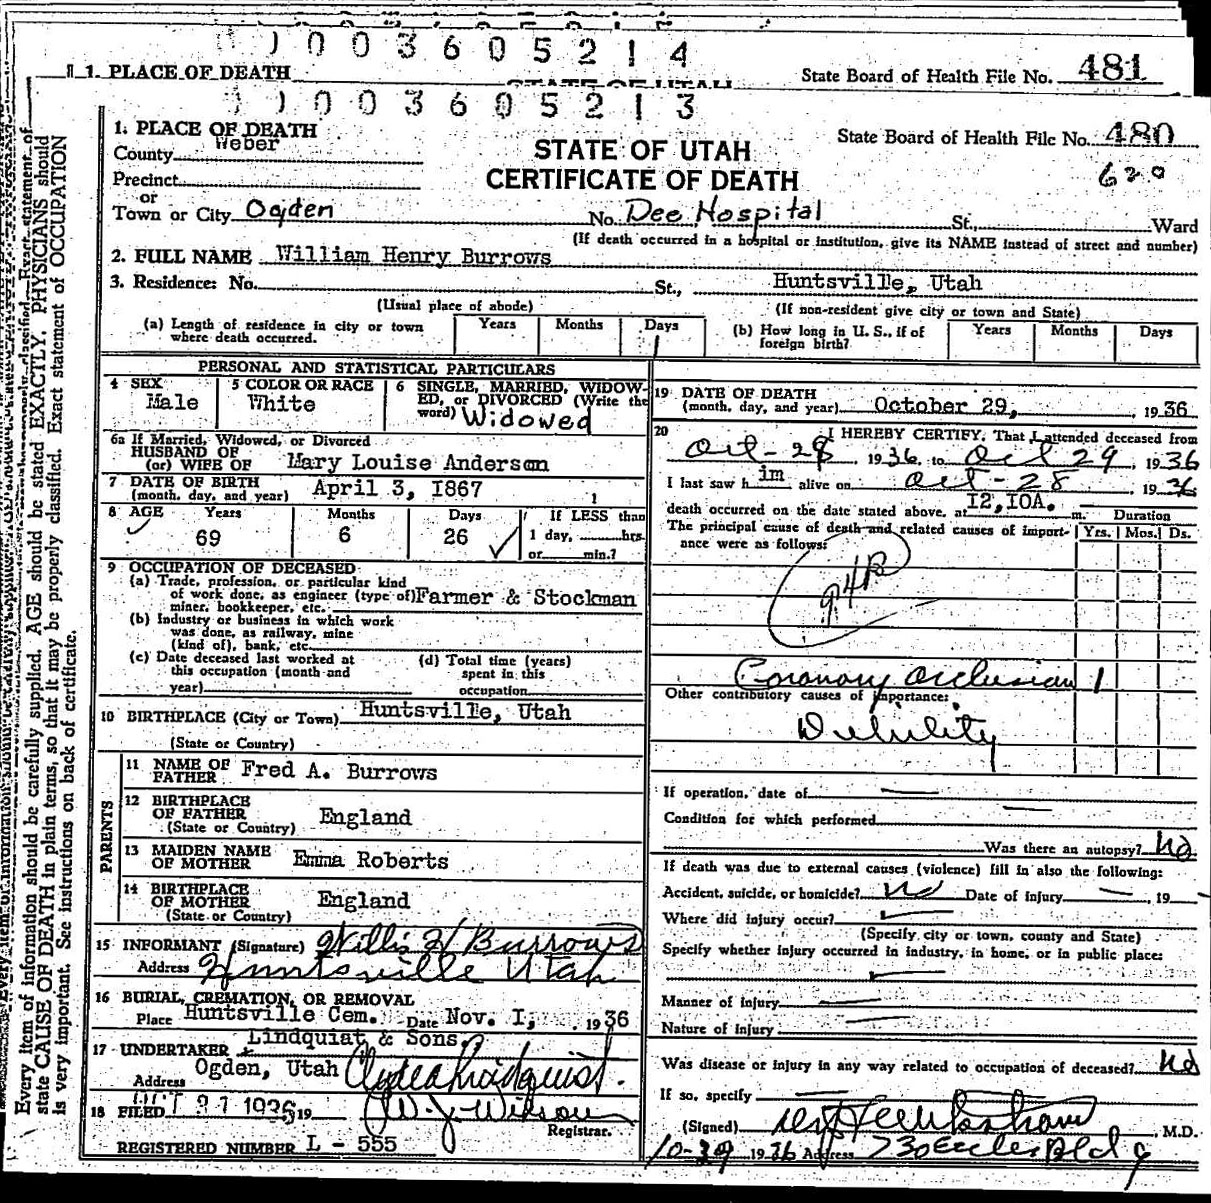 0 0 3 6 0 5 2 1 4
1. PLACE OF DEATH
STATE OF UTAH
State Board of Health File No. 481
0 0 3 6 0 5 2 1 3
1. PLACE OF DEATH
State Board of Health File No. 480
County Weber
STATE OF UTAH
CERTIFICATE OF DEATH
620
Precinct
or
Town or City Ogden No. Dee Hospital St., Ward
(If death occurred in a hospital or institution, give its NAME instead of street and number)
2. FULL NAME William Henry Burrows
3. Residence: No. St., Huntsville, Utah
(Usual place of abode) (If non-resident give city or town and State)
(a) Length of residence in city or town where death occurred. Years Months Days 1
(b) How long in U. S., if of foreign birth? Years Months Days
PERSONAL AND STATISTICAL PARTICULARS
4 SEX Male
5 COLOR OR RACE White
6 SINGLE, MARRIED, WIDOWED, or DIVORCED (Write the word) Widowed
6a If Married, Widowed, or Divorced
HUSBAND OF
(or) WIFE OF Mary Louise Anderson
7 DATE OF BIRTH
(month, day, and year) April 3, I867
8 AGE Years Months Days If LESS than
69 6 26 1 day, hrs.
or min.?
9 OCCUPATION OF DECEASED
(a) Trade, profession, or particular kind
of work done, as engineer (type of) Farmer & Stockman
miner, bookkeeper, etc.
(b) Industry or business in which work
was done, as railway, mine
(kind of), bank, etc.
(c) Date deceased last worked at
this occupation (month and
year)
(d) Total time (years)
spent in this
occupation
10 BIRTHPLACE (City or Town) Huntsville, Utah
(State or Country)
PARENTS
11 NAME OF FATHER Fred A. Burrows
12 BIRTHPLACE
OF FATHER England
(State or Country)
13 MAIDEN NAME
OF MOTHER Emma Roberts
14 BIRTHPLACE
OF MOTHER England
(State or Country)
15 INFORMANT (Signature) Willis H Burrows
Address Huntsville Utah
16 BURIAL, CREMATION, OR REMOVAL
Place Huntsville Cem. Date Nov. I, 1936
17 UNDERTAKER Lindquist & Sons.
Address Ogden, Utah Clyde Lindquist.
18 FILED OCT 31 1936 19 W. J. Wilson
Registrar.
REGISTERED NUMBER L - 555
19 DATE OF DEATH
(month, day, and year) October 29, , 1936
20 I HEREBY CERTIFY, That I attended deceased from
Oct - 28, 1936 to Oct 29, 1936
I last saw h im alive on Oct - 28, 1936
death occurred on the date stated above, at I2,IOA. m.
Duration
The principal cause of death and related causes of importance were as follows: Yrs. Mos. Ds.
94B
Coronary Occlusion 1
Other contributory causes of importance:
Debility
If operation, date of
Condition for which performed
Was there an autopsy? No
If death was due to external causes (violence) fill in also the following:
Accident, suicide, or homicide? No Date of injury , 19
Where did injury occur?
(Specify city or town, county and State)
Specify whether injury occurred in industry, in home, or in public place:
Manner of injury
Nature of injury
Was disease or injury in any way related to occupation of deceased? No
If so, specify
(Signed) , M.D.
10-29 1936 Address 730 Eccles Bldg
Every item of information should be carefully supplied. AGE should be stated EXACTLY. PHYSICIANS should
state CAUSE OF DEATH in plain terms, so that it may be properly classified. Exact statement of OCCUPATION
is very important. See instructions on back of certificate.